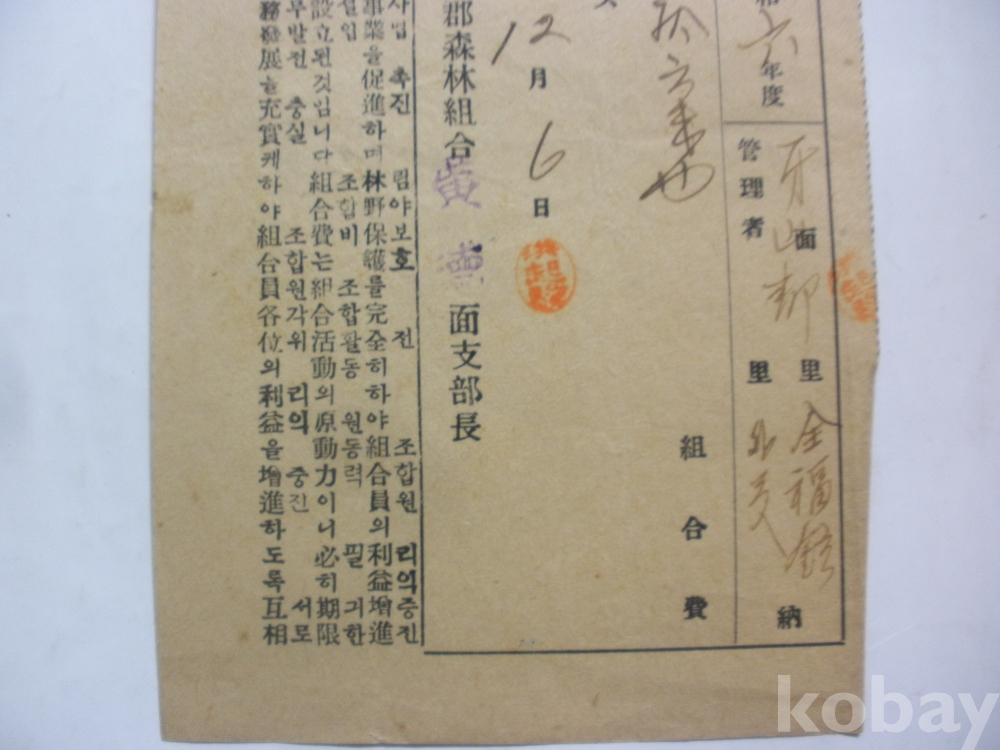 六年度
面 里 金福 納
管理者 里 外 人
組合費
12月6日
郡森林組合 黃 面支部長
사업 촉진 림야보호 전 조합원 리익증진
事業을促進하며林野保護를完全히하야組合員의利益增進
설입 조합비 조합활동 원동력 필 긔한
設立된것임니다組合費는組合活動의原動力이니必히期限
무발전 충실 조합원각위 리익 증진 서로
務發展을充實케하야組合員各位의利益을增進하도록互相
kobay